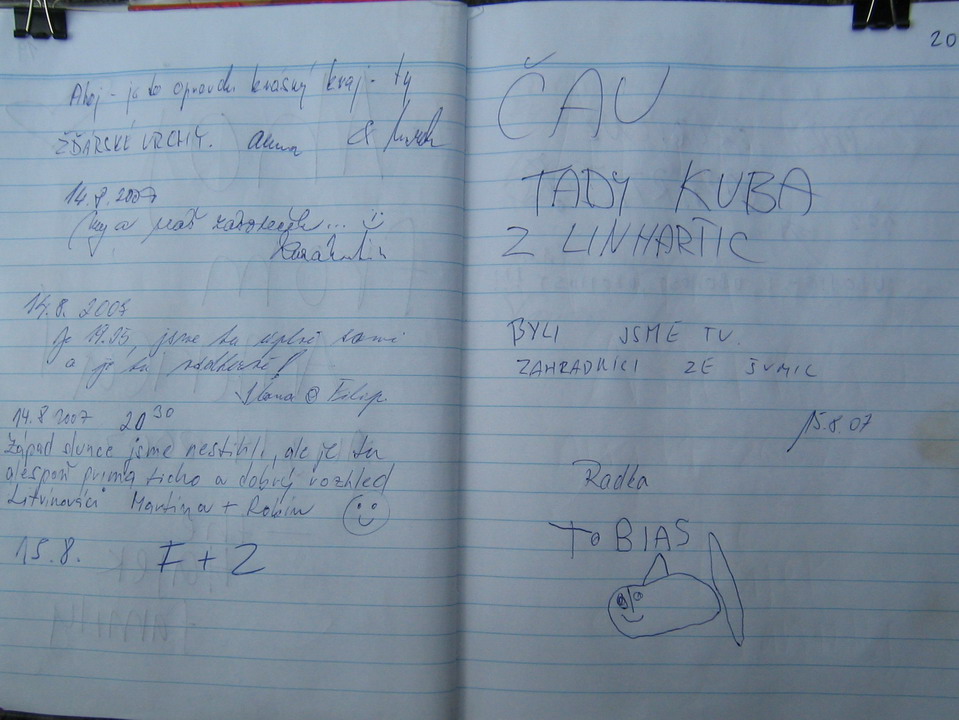 Ahoj - je to opravdu krásný kraj - ty
ŽĎÁRSKÉ VRCHY. &
14.8.2007
a
14.8. 2007
Je 19.35, jsme tu úplně sami
a je tu nádherně!
Ilona @ Filip.
14.8 2007 20 30
Západ slunce jsme nestihli, ale je tu
alespoň príma ticho a dobrý rozhled
Litvínováci Martina + Robin
15.8. F + Z
20
ČAU
TADY KUBA
Z LINHARTIC
BYLI JSME TU.
ZAHRADNICI ZE ŠUMIC
15.8.07
Radka
ToBIAS